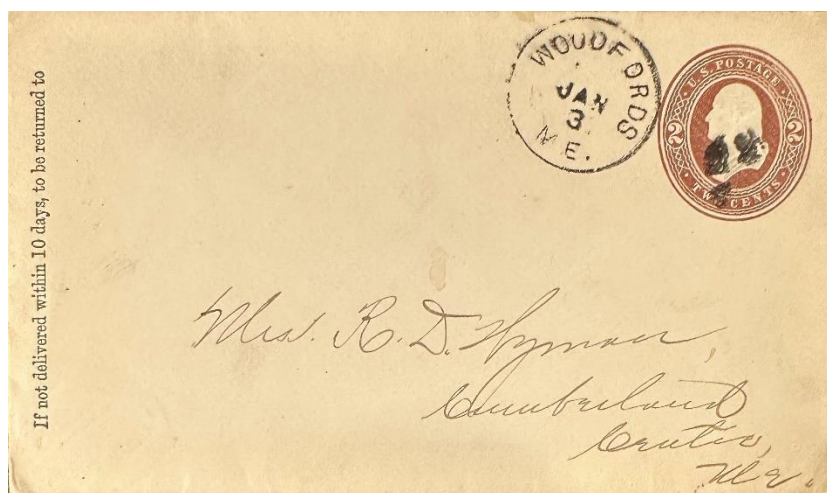 If not delivered within 10 days, to be returned to
WOODFORDS
JAN
3
ME.
U.S. POSTAGE
2 2
TWO CENTS
Mrs. R. D. Wyman,
Cumberland
Centre,
Me.